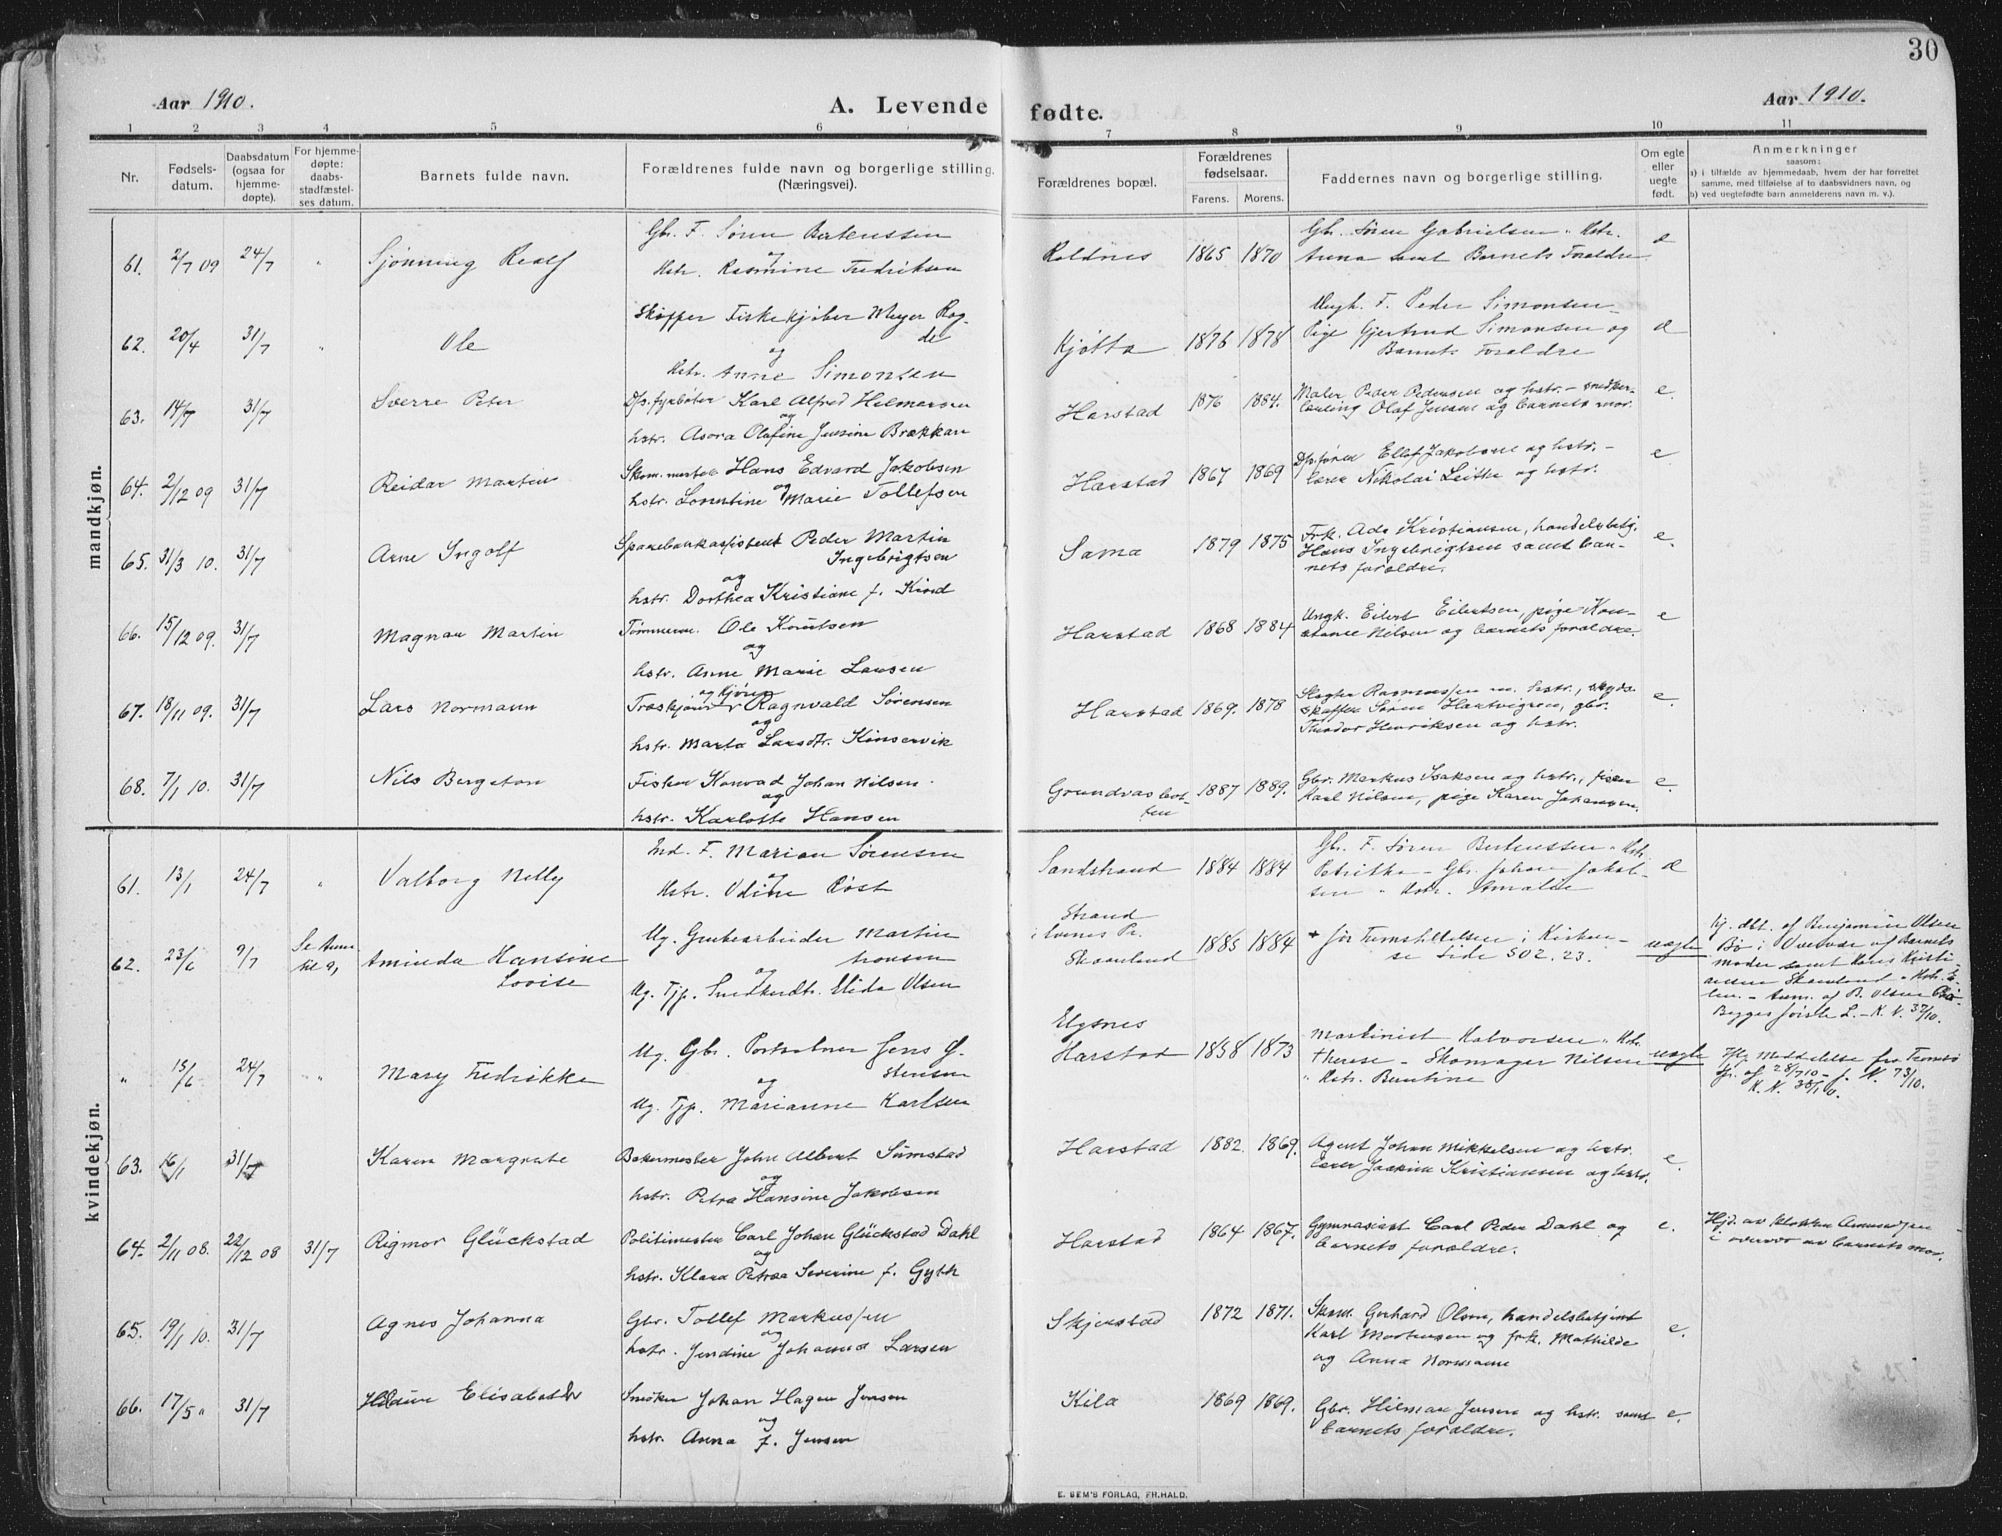 30
Aar 1910.
A. Levende fødte.
Aar 1910.
1 2 3 4 5 6 7 8 9 10 11
Nr.
Fødsels-
datum.
Daabsdatum
(ogsaa for
hjemme-
døpte).
For hjemme-
døpte:
daabs-
stadfæstel-
ses datum.
Barnets fulde navn.
Forældrenes fulde navn og borgerlige stilling.
(Næringsvei).
Forældrenes bopæl.
Forældrenes
fødselsaar.
Farens. Morens.
Faddernes navn og borgerlige stilling.
Om egte
eller
uegte
født.
Anmerkninger
saasom:
a) i tilfælde av hjemmedaab, hvem der har forrettet
samme, med tilføielse af to daabsvidners navn, og
b) ved uegtefødte barn anmelderens navn m. v.).
mandkjøn.
61. 2/7 09 24/7 " Sjønning Realf
Gbr. F. Søren Bertenssen
og
Hstr. Rasmine Fredriksen
Roldnes 1865 1870
Gb. Søren Gabrielsen " Hstr.
Anna samt Barnets Foraldre
e
62. 20/4 31/7 " Ole
Skipper Fiskekjøber Meyer Rog-
de
og
Hstr. Anne Simonsen
Kjøtta 1876 1878
Ungk. F. Peder Simonsen
Pige Gjertrud Simonsen og
Barnets Foraldre
e
63. 14/7 31/7 Sverre Peter
Dps.fyrbøter Karl Alfred Hilmersen
og
hstr. Asora Olafine Jensine Brækkan
Harstad 1876 1884.
Maler Peder Pedersen og hstr. – snedker-
lærling Olaf Jensen og barnets mor.
e.
64. 2/12 09 31/7 Reidar Martin
Skom.mester Hans Edvard Jakobsen
og
hstr. Lorentine Marie Tollefsen
Harstad 1867 1869
Dpsfører Ellef Jakobsen og hstr. –
lærer Nikolai Leithe og hstr.
e
65. 31/3 10. 31/7 Arne Ingolf
Sparebankassistent Peder Martin
Ingebrigtsen
og
hstr. Dorthea Kristiane f. Kind
Sama 1879 1875
Frk. Ada Kristiansen, handelsbetj.
Hans Ingebrigtsen samt bar-
nets foraldre.
e.
66. 15/12 09. 31/7 Magnar Martin
Tømmerm. Ole Knutsen
og
hstr. Anne Marie Larsen
Harstad 1868 1884
Ungk. Eilert Eilertsen, pige Kon-
stanse Nilsen og barnets foraldre.
e
67. 18/11 09. 31/7 Lars Normann
og kjører
Træskjærer Ragnvald Sørensen
og
hstr. Marta Larsdtr. Kinservik
Harstad 1869. 1878
Slagter Rasmussen m. hstr., skyds-
skaffer Søren Hartvigsen, gbr.
Theodor Henriksen og hstr.
e.
68. 7/1 10. 31/7 Nils Bergeton
Fisker Konrad Johan Nilsen.
og
hstr. Karlotte Hansen
Grundvasbot-
ten
1887 1889.
Gbr. Markus Isaksen og hstr., fisker
Karl Nilsen, pige Karen Johansen.
e.
kvindekjøn.
61. 13/1 24/7 " Valborg Nelly
Ind. F. Marian Sørensen
og
Hstr. Udine Røst
Sandstrand 1884 1884
Gb. F. Søren Bertenssen " Hstr.
Petrikka – Gbr. Johan Jakob-
sen " Hstr. Amalde
e
62. 23/6 9/7 Se Anm
til 9,
Aminda Hansine
Lovise
Ug. Grubearbeider Martin
Hansen
og
Ug. Tjp. Snedkerdtr. Alida Olsen
Strand
i Evenes Pr.
Skaanland
1885 1884
+ før Fremstillelsen i Kirken –
se Side 502. 23.
uægte
Hj. dbt. af Benjamin Olsen
Bø i Overvær af Barnets
moder samt Hans Kristi-
ansen Skaanland " Hstr. E-
len. – Anm. af B. Olsen Bø
" 15/6 24/7 " Mary Fredrikke
Ug. Gbr. Jens O.
Stensen
og
Ug. Tjp. Marianne Karlsen
Elgsnes
Harstad 1858 1873
Martinist Halvorsen " Hstr.
Therese – Skomager Nilsen
" Hstr. Berntine
uægte
Iflg Meddelelse fra Tromsø
63. 16/1 31/7 Karen Margrete
Bakermester John Albert Sumstad
og
hstr. Petra Hansine Jakobsen
Harstad 1882. 1869.
Agent Johan Mikkelsen og hstr.
lærer Joakim Kristiansen og hstr.
e.
64. 2/11 08. 22/12 08 31/7 Rigmor Glückstad
Politimester Carl Johan Glückstad Dahl
og
hstr. Klara Petrea Severine f. Gyth
Harstad 1864 1867.
Gymnasiast Carl Peder Dahl og
barnets foraldre.
e.
Hjd. av klokker Amundsen
i overvær av barnets mor.
65. 19/1 10. 31/7 Agnes Johanna
Gbr. Tollef Markussen
og
hstr. Jendine Johanna Larsen
Skjerstad 1872 1871.
Skom. Gerhard Olsen, handelsbetjent
Karl Mortensen og frk. Mathilde
og Anna Normann
e.
66. 17/5 " 31/7 Hildur Elisabeth
Snekker Johan Hagen Jensen
og
hstr. Anna f. Jensen
Kila 1869 1869.
Gbr. Hilmar Jensen og hstr. samt
barnets foraldre.
e.
E. SEM'S FORLAG, FR.HALD.